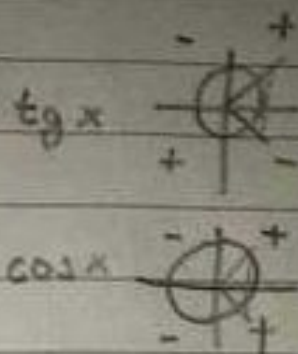 - +
tg x
+ -
- +
cos x
- +